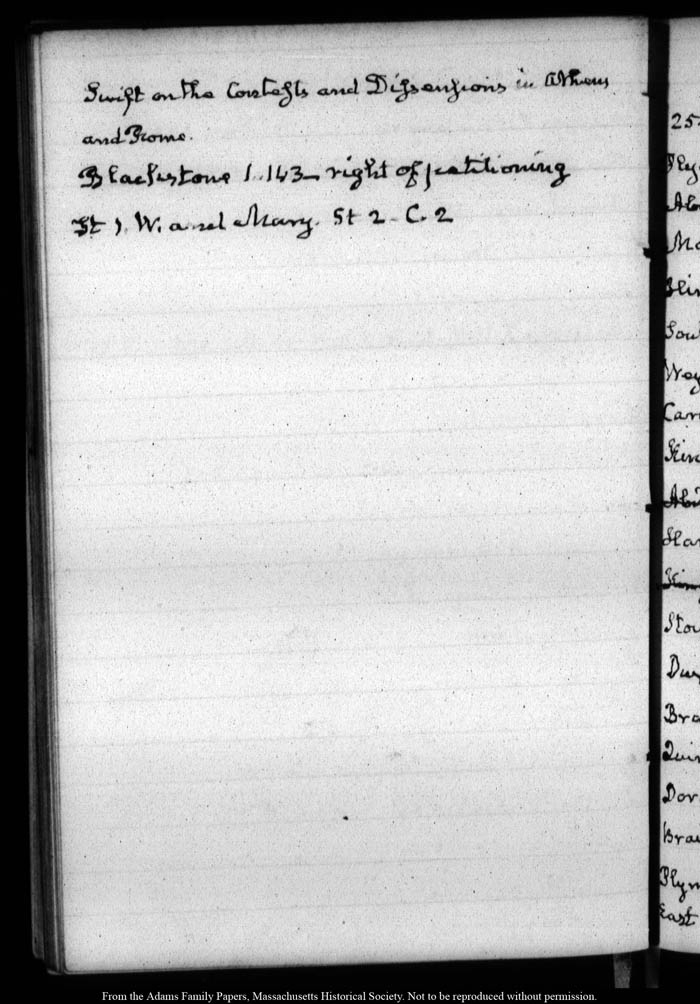 Swift on the Contests and Dissensions in Athens
and Rome.
Blackstone 1. 143 – right of petitioning
St 1. W. and Mary. St 2. C. 2
25
Ply
Ab
Mo
Sou
Wey
Car
Kin
Abi
Stou
Bra
Quin
Dor
Brai
Plym
East
From the Adams Family Papers, Massachusetts Historical Society. Not to be reproduced without permission.